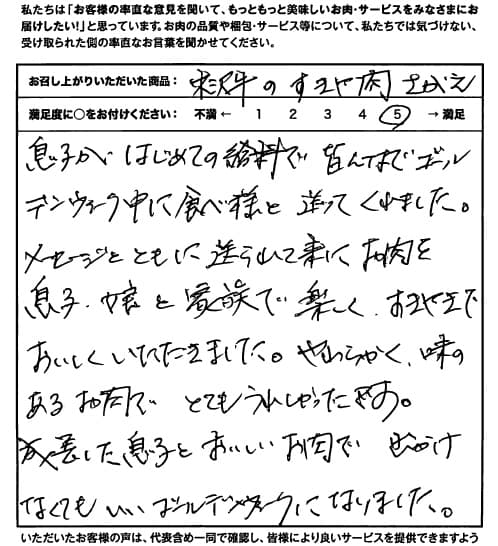 私たちは「お客様の率直な意見を聞いて、もっともっと美味しいお肉・サービスをみなさまにお
届けしたい!」と思っています。お肉の品質や梱包・サービス等について、私たちでは気づけない、
受け取られた側の率直なお言葉を聞かせてください。
お召し上がりいただいた商品: 米沢牛のすきや肉
満足度に○をお付けください: 不満 ← 1 2 3 4 5 → 満足
息子がはじめての給料で 皆んなでゴール
デンウィーク中に食べ様と 送ってくれました。
メッセージとともに送られて来た お肉を
息子・嬢と家族で 楽しく、すきやきで
おいしくいただきました。やわらかく、味の
あるお肉で とてもうれしかったです。
成長した息子と おいしいお肉で 出かけ
なくても いいゴールデンウィークになりました。
いただいたお客様の声は、代表含め一同で確認し、皆様により良いサービスを提供できますよう